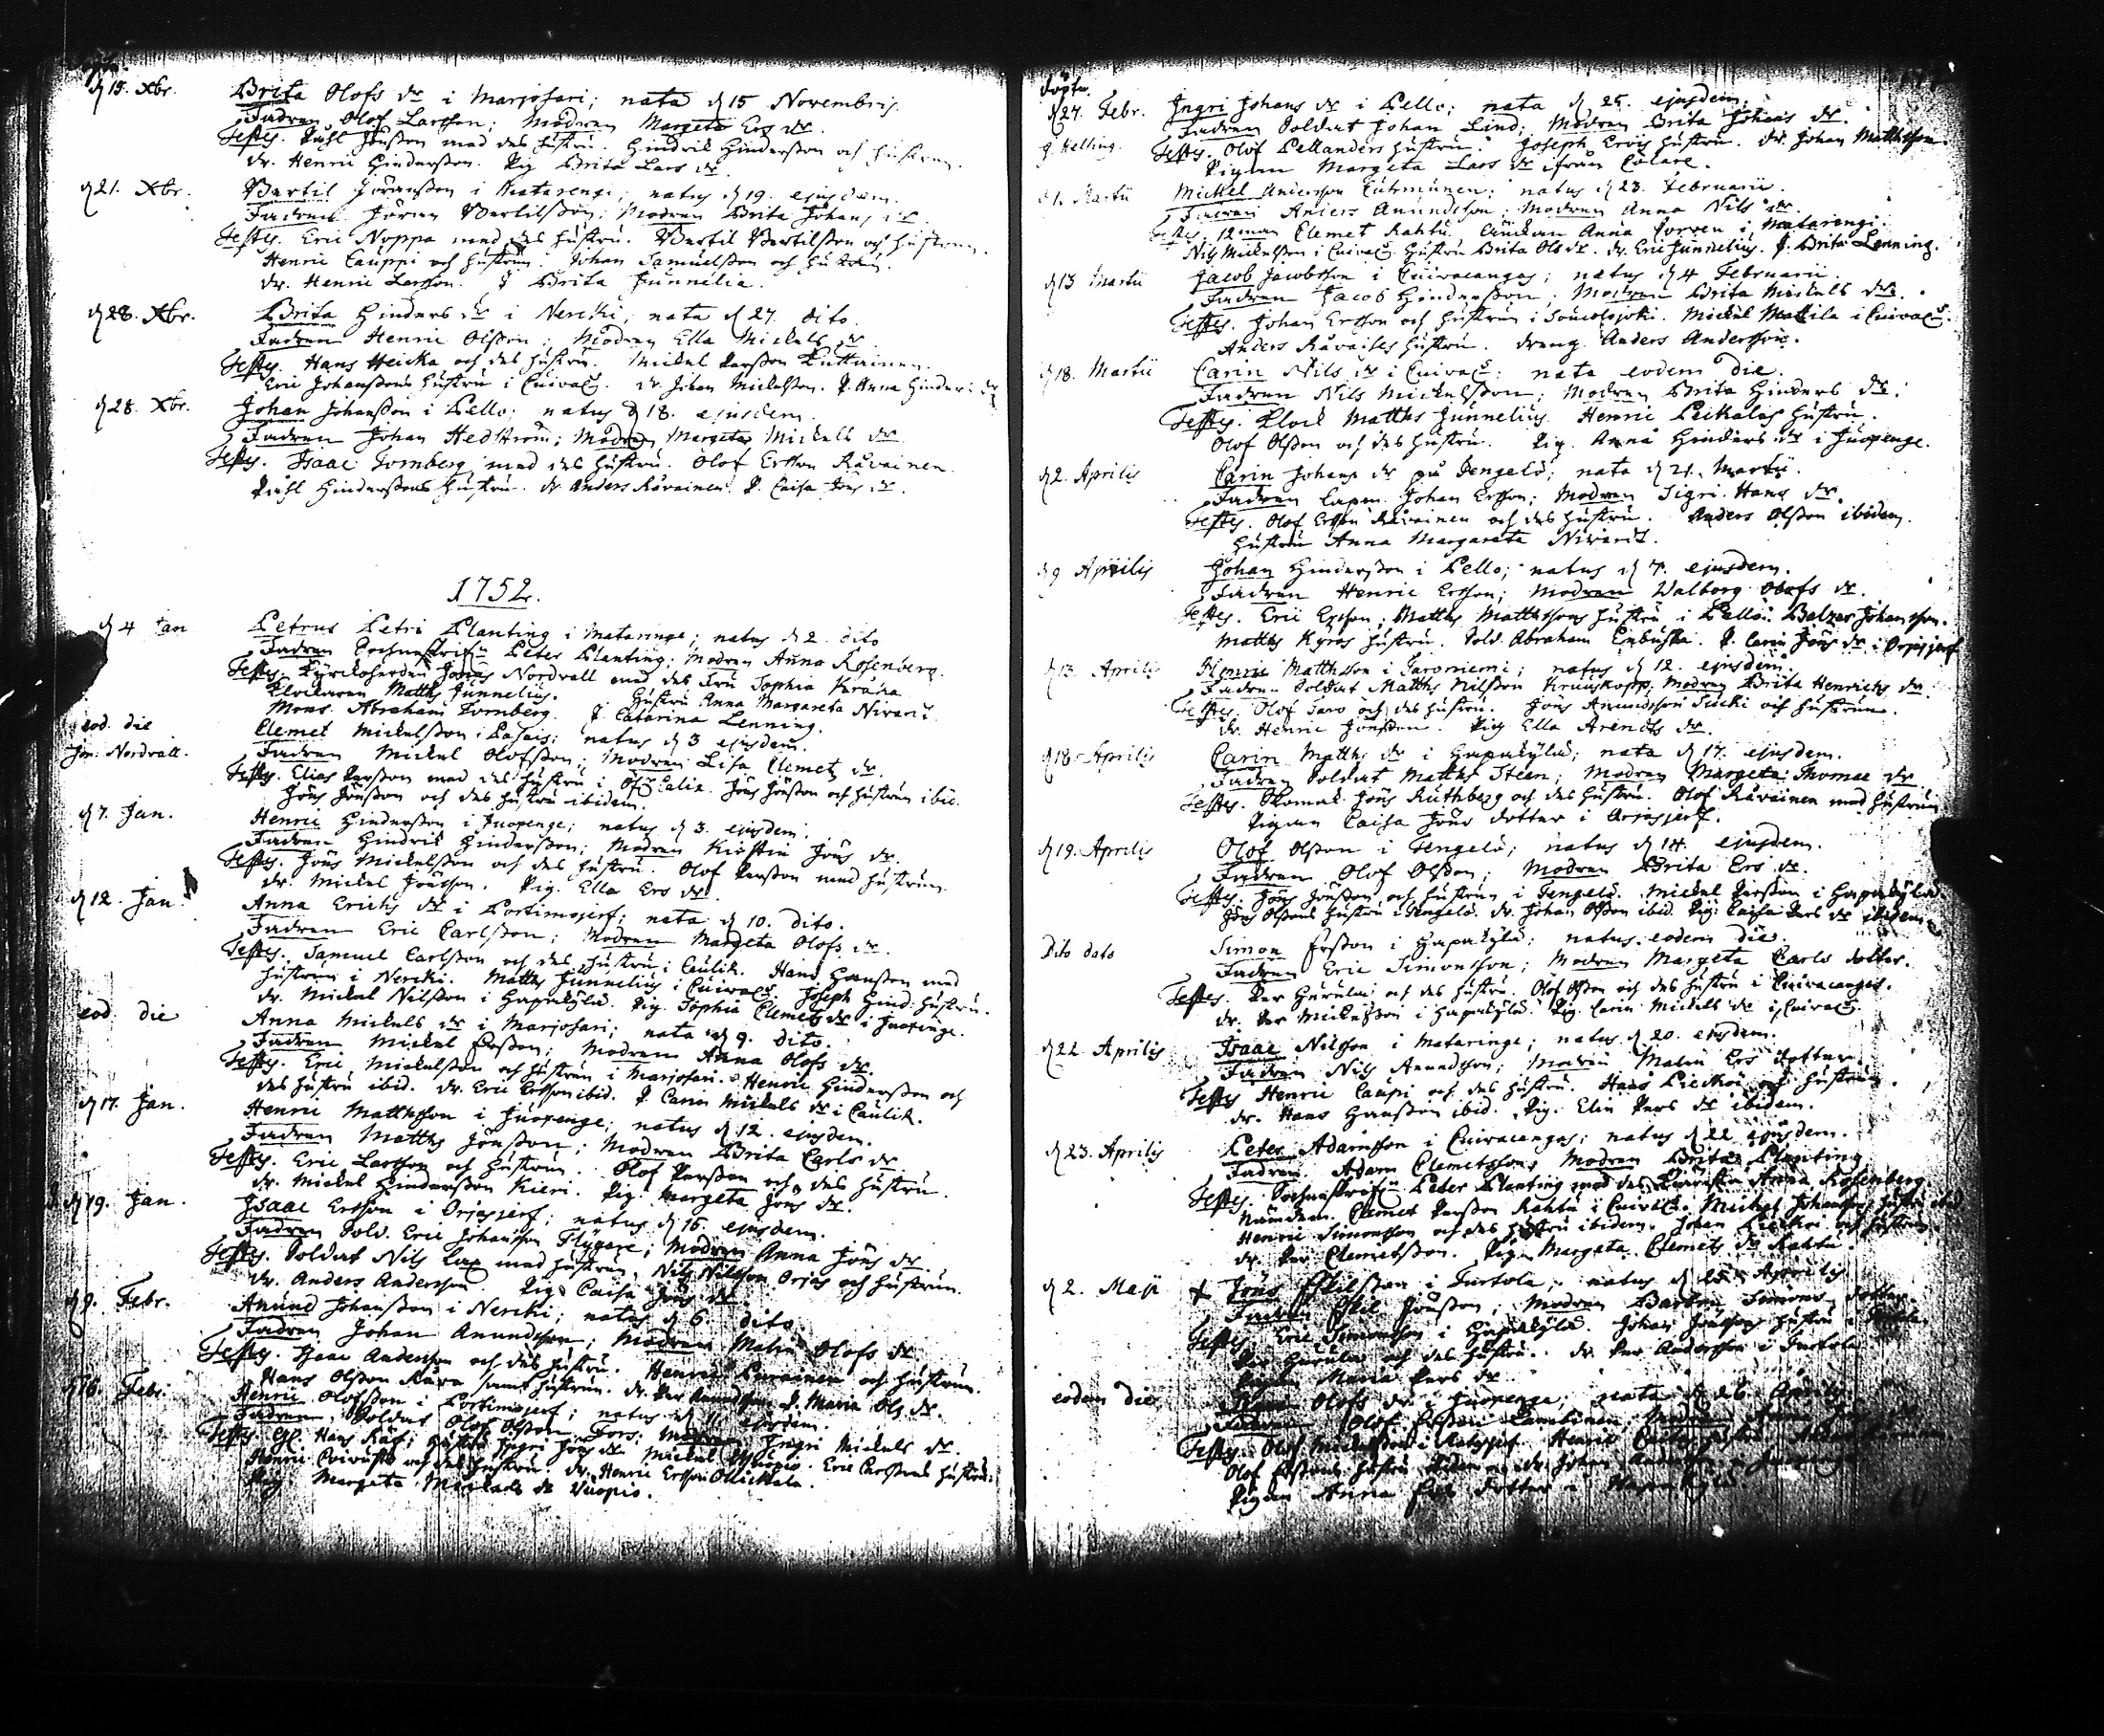 d 15. Xbr. Brita Olofs dr i Marjosari; nata d 15 Novembris.
Fadren Olof Larsson; Modren Margeta Ers dr.
Testes. Påhl Jönsson med des hustru. Hindrik Hindersson och hustrun.
dr. Henric Hindersson. Pig. Brita Lars dr.
d 21. Xbr. Bertil Göransson i Matarengi; natus d 19. ejusdem.
Fadren Göran Bertilsson; Modren Brita Johans dr.
Testes. Eric Noppa med des hustru. Bertil Bertilsson och hustrun.
Henric Cauppi och hustrun. Johan Samuelsson och hustrun.
dr. Henric Larsson. J Brita Junnelia.
d 28. Xbr. Brita Hinders dr i Nercki; nata d 27. dito.
Fadren Henric Olsson; Modren Ella Mickels dr.
Testes. Hans Heicka och des hustru. Mickel Persson Kuttainen.
Eric Johanssons hustru i Cuivac. dr. Johan Mickelsson. P. Anna Hinders dr
d 28. Xbr. Johan Johansson i Pello; natus d 18. ejusdem.
Fadren Johan Hedström; Modren Margeta Mickels dr.
Testes. Isaac Tornberg med des hustru. Olof Ersson Råvainen.
Påhl Hinderssons hustru. dr Anders Råvainen. P. Caisa Jöns dr.
1752.
d 4 Jan Petrus Petri Planting i Mataringe; natus d 2. dito
Fadren Peter Planting; Modren Anna Rosenberg.
Testes. Kyrckoherden Jonas Nordvall med des Fru Sophia
Klockaren Matths Junnelius. Hustru Anna Margareta
Mons. Abraham Tornberg. J. Catarina Lenning.
eod. die Clemet Mickelsson i; natus d 3 ejusdem.
Jon: Nordvall. Fadren Mickel Olofsson; Modren Lisa Clemets dr.
Testes. Elias Persson med des hustru i. Jöns Jönsson och hustrun ibid.
Jöns Jönsson och des hustru ibidem.
d 7. Jan. Henric Hindersson i Juopenge; natus d 3. ejusdem.
Fadren Hindric Hindersson; Modren Kirstin Jöns dr.
Testes. Jöns Mickelsson och des hustru. Olof Persson med hustrun.
dr. Mickel Jönsson. Pig. Ella Ers dr.
d 12. Jan. Anna Erichs dr i Portimojerf; nata d 10. dito.
Fadren Eric Carlsson; Modren Margeta Olofs dr.
Testes. Samuel Carlsson och des hustru i Caulir. Hans Hansson med
hustrun i Nercki. Matths Junnelius i Cuivac. Joseph Hind: hustru.
dr. Mickel Nilsson i Hapakylä. Pig. Sophia Clemets dr i Juopenge.
eod die Anna Mickels dr i Marjosari; nata d 9. dito.
Fadren Mickel Ersson; Modren Anna Olofs dr.
Testes. Eric Mickelsson och hustrun i Marjosari. Henric Hindersson och
des hustru ibid. dr. Eric Ersson ibid. P. Carin Mickels dr i Caulir.
d 17. Jan. Henric Matthsson i Juopenge; natus d 12. ejusdem.
Fadren Matths Jönsson; Modren Brita Carls dr.
Testes. Eric Larsson och hustrun. Olof Persson och des hustru.
dr. Mickel Hindersson Kieri. Pig. Margeta Jöns dr.
d 19. Jan. Isaac Ersson i Orjasjerf; natus d 16. ejusdem.
Fadren Sold. Eric Johansson Flygare; Modren Anna Jöns dr.
Testes. Soldat Nils Lax med hustrun. Nils Nilsson Orjas och hustrun.
dr. Anders Andersson. Pig. Caisa Jöns dr.
d 9. Febr. Anund Johansson i Nercki; natus d 6. dito
Fadren Johan Anundsson; Modren Malin Olofs dr
Testes. Isaac Andersson och des hustru. Henric och hustrun.
Hans Olsson samt hustrun. dr. Per Anundsson. P. Maria Ols dr.
d 16. Febr. Henric Olofsson i Portimojerf; natus d 11 ejusdem.
Fadren Soldat Olof Olsson Fors; Modren Ingri Mickels dr.
Testes. Hans; hustru Ingri Jöns dr. Mickel Vuopio. Eric Carlssons hustru.
Henric och des hustru. dr. Henric Ersson Ollickala.
Pig. Margeta Mickels dr Vuopio.
döpt.
d 27. Febr. Ingri Johans dr i Pello; nata d 25. ejusdem.
J. Helling. Fadren Soldat Johan Lind; Modren Brita Johans dr.
Testes. Olof Pellanders hustru. Joseph Ervis hustru. dr. Johan Matthsson.
Pigan Margeta Lars dr ifrån Colare.
d 1. Martii Mickel Andersson; natus d 23. Februarii.
Fadren Anders Anundsson; Modren Anna Nils dr.
Testes. 12man Clemet Rahtu. Änckan Anna i Matarengi.
Nils Mickelsson i Cuivac. Hustru Brita Ols dr. dr. Eric Junnelius. J. Brita Lenning.
d 13 Martii Jacob Jacobsson i Cuivacangas; natus d 4 Februarii.
Fadren Jacob Hindersson; Modren Brita Mickels dr.
Testes. Johan Ersson och hustrun i. Mickel Mattila i Cuivac.
Anders hustru. dreng. Anders Andersson.
d 18. Martii Carin Nils dr i Cuivac; nata eodem die.
Fadren Nils Mickelsson; Modren Brita Hinders dr.
Testes. Klock Matths Junnelius. Henric Peikalas hustru.
Olof Olsson och des hustru. Pig. Anna Hinders dr i Juopenge.
d 2. Aprilis Carin Johans dr på Tengelö; nata d 21. Martii.
Fadren Johan Ersson; Modren Sigri Hans dr.
Testes. Olof Ersson Råvainen och des hustru. Anders Olsson ibidem.
hustru Anna Margareta
d 9 Aprilis Johan Hindersson i Pello; natus d 7. ejusdem.
Fadren Henric Ersson; Modren Walborg Olofs dr.
Testes. Eric Ersson; Matths Matthssons hustru i Pello. Balzer Johansson.
Matths Kyrös hustru. Sold. Abraham Enbuska. P. Carin Jöns dr i Orjasjerf
d 13. Aprilis Henric Matthsson i Jaroniemi; natus d 12. ejusdem.
Fadren Soldat Matths Nilsson Kruuskopp; Modren Brita Henrichs dr.
Testes. Olof och des hustru. Jöns Anundsson och hustrun.
dr. Henric Jönsson. Pig Ella Arendts dr.
d 18. Aprilis Carin Matths dr i Hapakylä; nata d 17. ejusdem.
Fadren Soldat Matths Steen; Modren Margeta Thomae dr
Testes. Skomak. Jöns Ruthberg och des hustru. Olof Råvainen med hustrun
Pigan Caisa Jöns dotter i Orjasjerf.
d 19. Aprilis Olof Olsson i Tengelö; natus d 14. ejusdem.
Fadren Olof Olsson; Modren Brita Ers dr.
Testes. Jöns Jönsson och hustrun i Tengelö. Mickel Persson i Hapakylä
Jöns Olssons hustru i Tengelö. dr. Johan Olsson ibid. Pig. Caisa Pers dr ibidem.
Dito dato Simon Ersson i Hapakylä; natus eodem die.
Fadren Eric Simonsson; Modren Margeta Carls dotter.
Testes. Per Hurula och des hustru. Olof Olsson och des hustru i Cuivacangas.
dr. Per Mickelsson i Hapakylä. Pig. Carin Mickels dr i Cuivac.
d 22. Aprilis Isaac Nilsson i Mataringe; natus d 20. ejusdem.
Fadren Nils Anundsson; Modren Malin Ers dotter.
Testes Henric Caupi och des hustru. Hans och hustrun.
dr. Hans Hansson ibid. Pig. Elin Pers dr ibidem.
d 23. Aprilis Peter Adamsson i Cuivacangas; natus d 22 ejusdem.
Fadren Adam Clemetsson; Modren Brita Planting
Testes. Peter Planting med des Anna Rosenberg
Nämdem. Clemet Persson Rahtu i Cuivac. Michel Johanssons hustru ibid
Henric Simonsson och des hustru ibidem. Johan och hustrun.
dr. Per Clemetsson. Pig. Margeta Clemets dr Rahtu.
d 2. Maji Jöns Eskilsson i Turtola; natus d 25 Aprilis
Fadren Eskil Jönsson; Modren Barbro Simons dotter.
Testes. Eric Simonsson i Hapakylä. Johan Jönssons hustru i Turtola.
Per Hurula och des hustru. dr. Per Andersson i Turtola.
Pigan Maria Pers dr.
eodem die Olofs dr i Juopenge; nata d 26 Aprilis.
Fadren Olof Ersson
Testes. Olof Mickelsson i. Henric
Olof Erssons hustru ibidem. dr. Johan Andersson
Pigan Anna dotter i